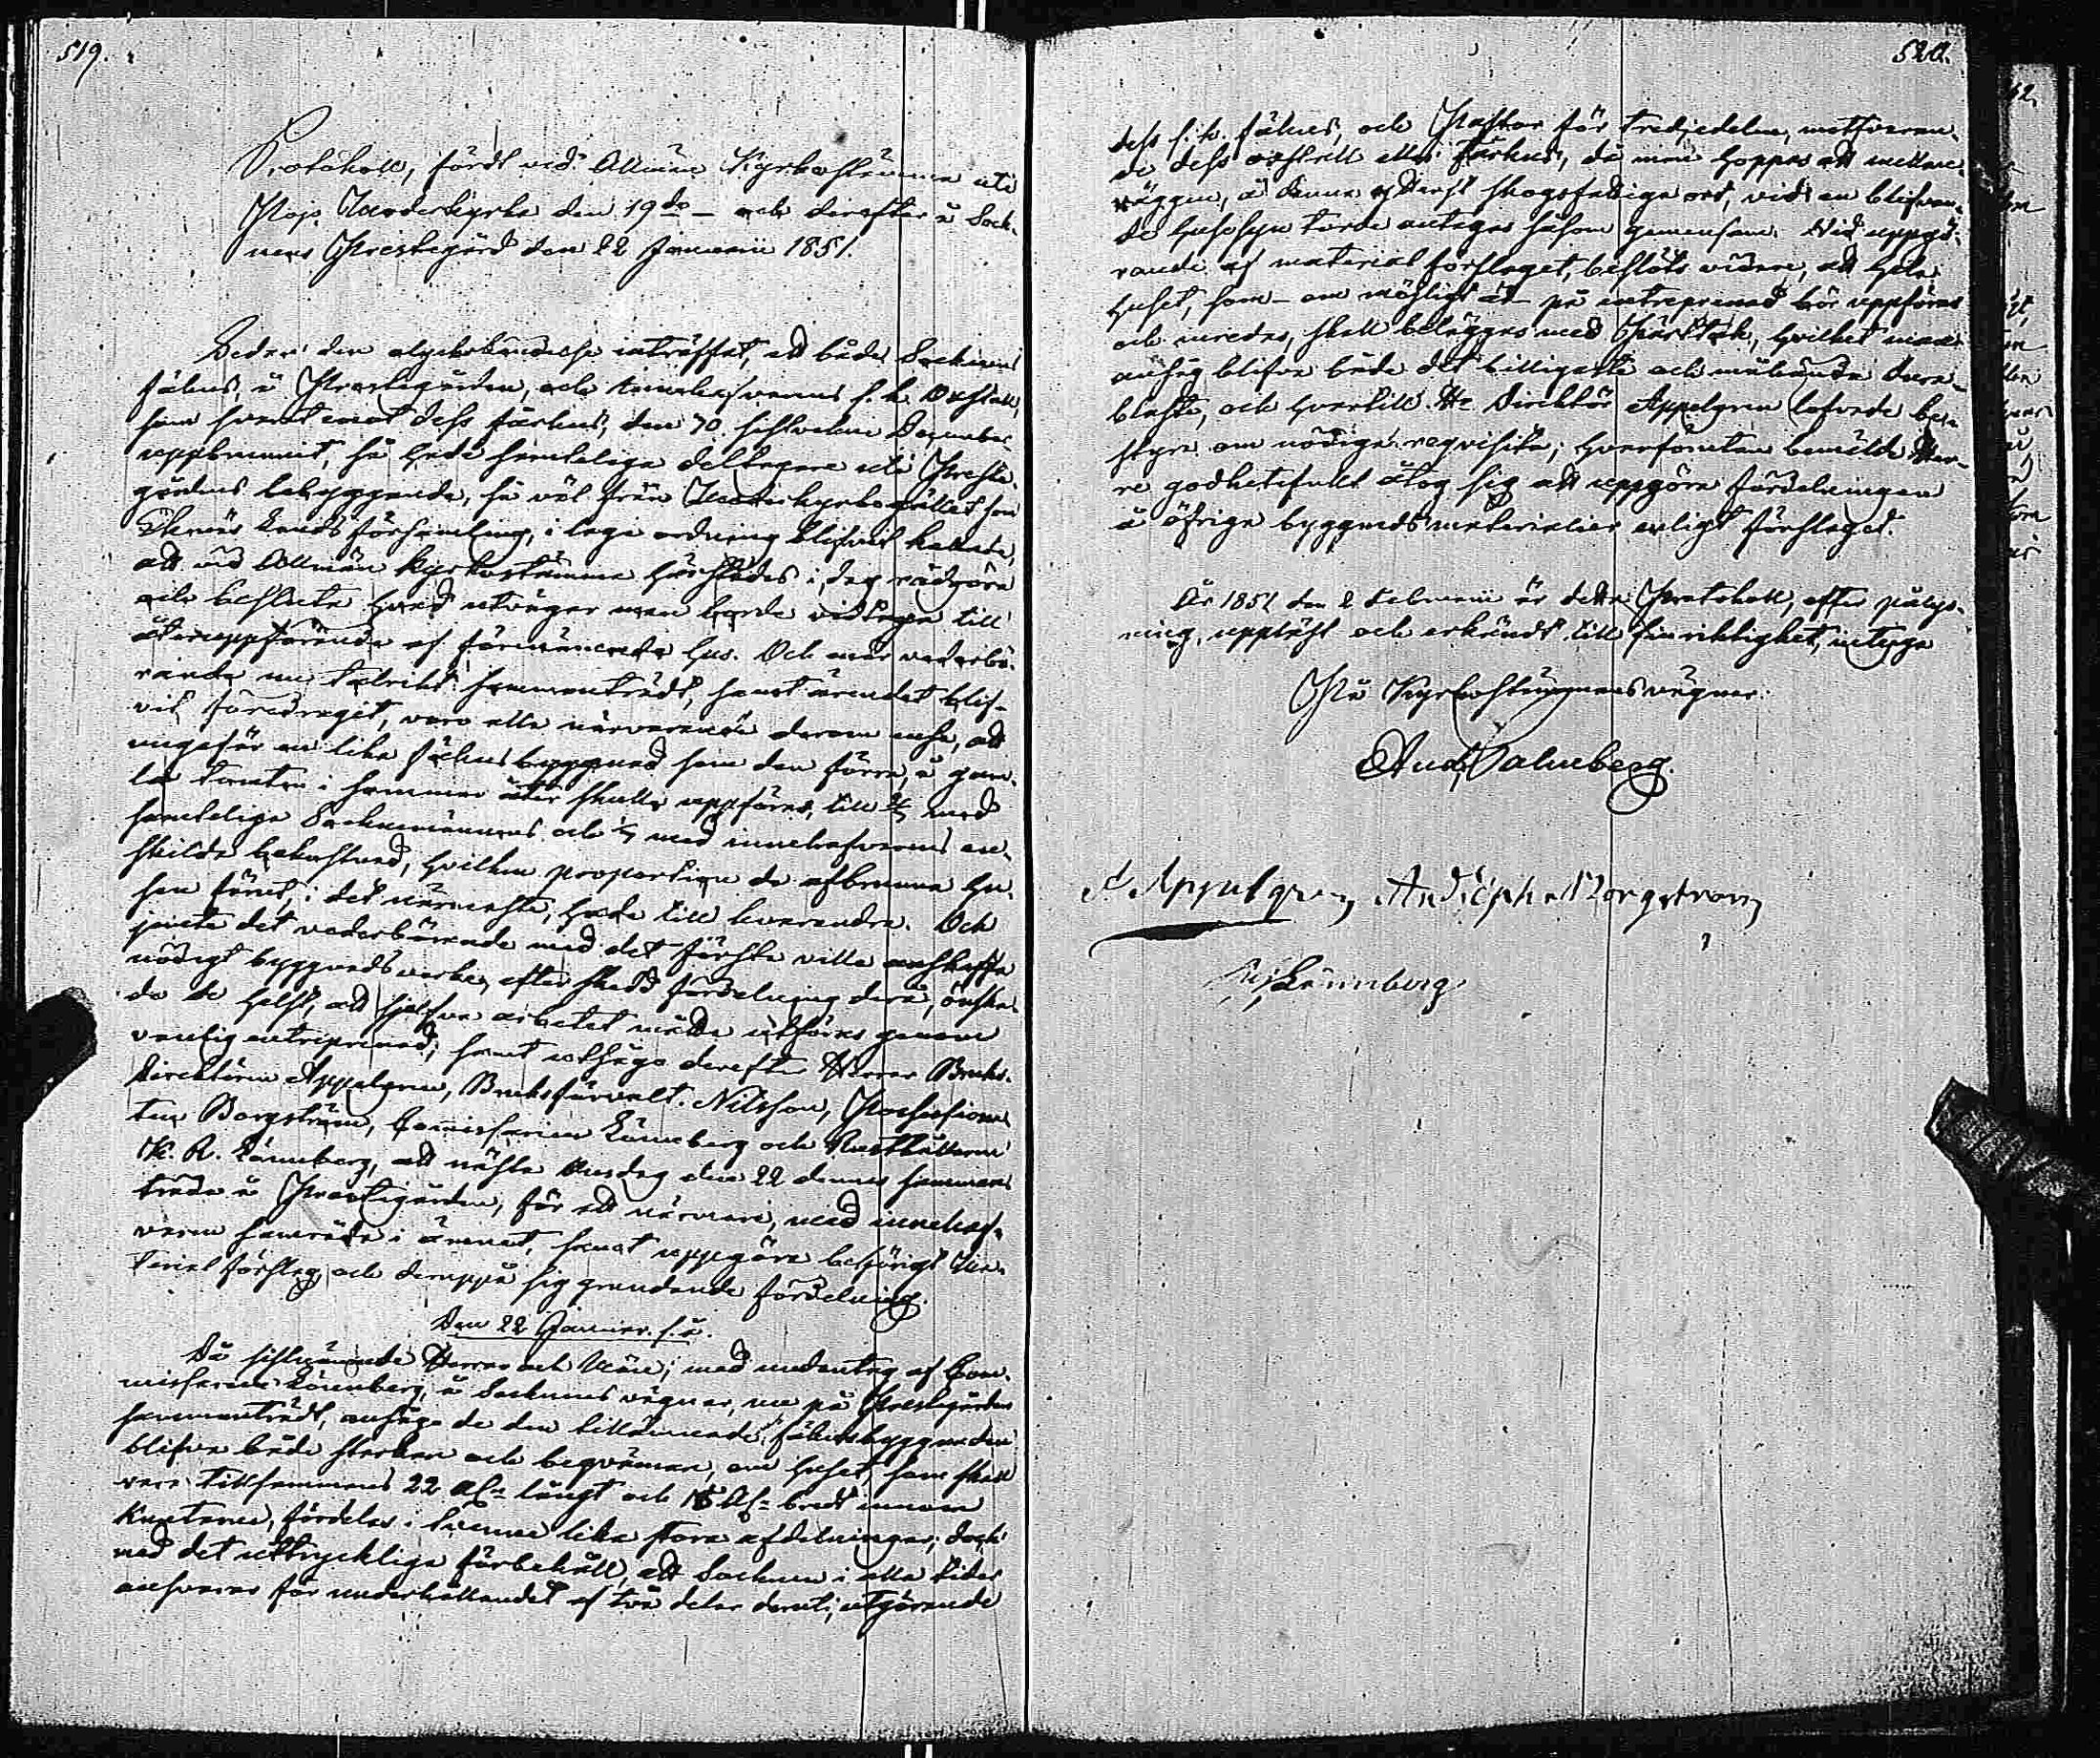 519.
Protokoll, fördt vid Allmän Kyrkostämma uti
Moderkyrka den 19de – och derefter å Sock-
nens Prestegård den 22 Januarii 1851.
Sedan den olyckshändelse inträffat, att både Socknens
fähus, å Prestegården, och innehafvarens s. k. Oxstall,
som svarat emot dess fårhus, den 30 sistledne December
uppbrunnit, så hade samtelige deltagare uti Preste-
gårdens bebyggande, så väl från Moderkyrkogället som
församling, i laga ordning blifvit kallade,
att vid Allmän Kyrkostämma härstädes i dag rådgöra
och besluta hvad utvägar man borde vidtaga till
återuppförande af förenämnda hus. Och som vederbö-
rande nu talrikt sammanträdt, samt ärendet blif-
vit föredraget, voro alla närvarande derom ense, att
ungefär en lika fähusbyggnad som den förra, å gam-
la tomten i sommar åter skulle uppföras, till med
samtelige Sockenmännens och med innehafvarens en-
skilda bekostnad, hvilken proportion de afbrunna hu-
sen förut, i det närmaste, hade till hvarandra. Och
jemte det vederbörande med det första ville anskaffa
nödigt byggnadsvirke, efter skedd fördelning derå, önska-
de de helst, att sjelfva arbetet måtte utföras genom
vanlig entreprenad; samt utsågo derefter Herrar Bruks-
Direktören Appelgren, Bruksförvalt. Nilsson, Possessiona-
ten Borgström, Commissarien Lönnberg och Rusthållaren
K. R. Lönnberg, att nästa Onsdag den 22 dennes samman-
träda å Prestegården, för att närmare, med innehaf-
varen samråda i ämnet, samt uppgöra behörigt Ma-
terialförslag och deruppå sig grundande fördelning.
Den 22 Januar. s. å.
Då sistnämnde Herrar och Män, med undantag af Com-
missarien Lönnberg, å Socknens vägnar, nu på Prestegården
sammanträdt, ansågo de den tillämnade fähusbyggnaden
blifva både starkare och beqvämare, om huset, som skall
vara tillsammans 22 Al:r långt och Al:r bredt innom
Knutarne, fördelas i tvenne lika stora afdelningar; dock
med det uttryckliga förbehåll, att Socknen i alla tider
ansvarar för underhållandet af två delar deruti, utgörande
520.
dess s. k. fähus, och Pastor för tredjedelen, motsvaran-
de dess oxstall eller fårhus, då man hoppas att mellan-
väggen, å denna ytterst skogsfattiga ort, vid en blifvan-
de husesyn torde antagas såsom gemensam. Vid uppgö-
rande af materialförslaget, beslöts vidare, att hela
huset, som – om möjligt är – på entreprenad bör uppföras
och inredas, skall beläggas med Spåntak, hvilket man
ansåg blifva både det billigaste och måhända vara-
ktigaste, och hvartill Hr Direktör Appelgren lofvade be-
styra om nödiga reqvisita; hvarförutan bemälde Her-
re godhetsfullt åtog sig att uppgöra fördelningen
å öfriga byggnadsmaterialier enligt förslaget.
År 1851 den 2 Februarii är detta Protokoll, efter pålys-
ning, uppläst och erkändt till sin riktighet, intyga
På Kyrkostämmans vägnar:
And. Palmberg.
Appelgren Borgström
Lönnberg